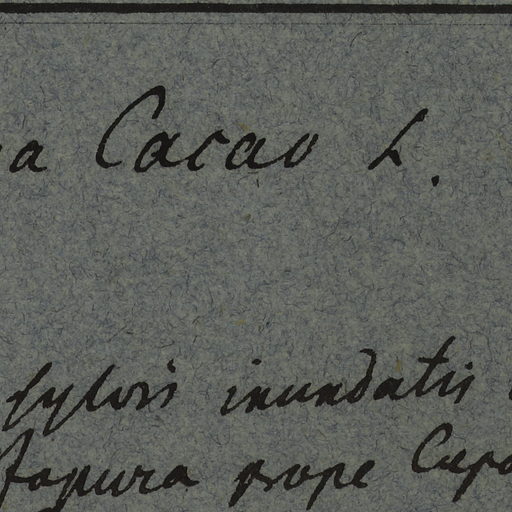 a Cacao L.
sylvis inundatis
Japura prope Cupa